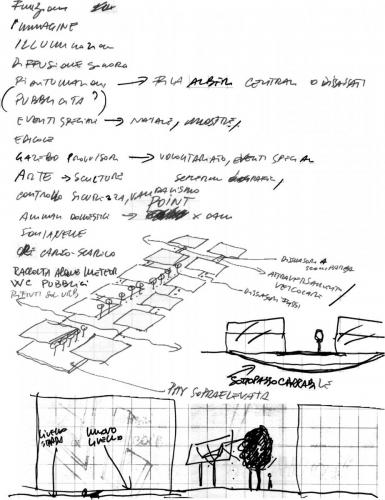 Funzioni
IMMAGINE
ILLUMINAZIONE
DIFFUSIONE SONORA
PIANTUMAZIONI → FILA ALBERI CENTRALI O DISASSATI
(PUBBLICITA'?)
EVENTI SPECIALI → NATALE, MOSTRE,
EDICOLE
GAZEBO PROVVISORI → VOLONTARIATO, EVENTI SPECIALI
ARTE → SCULTURE
CONTROLLO SICUREZZA, VANDALISMO
ANIMALI DOMESTICI → POINT X CANI
FONTANELLE
ORE CARICO-SCARICO
RACCOLTA ACQUE METEOR
WC PUBBLICI
RIFIUTI SOLIDI
DISSUASORI A
SCOMPARSA
ATTRAVERSAMENTO
VEICOLARE
DISSUASORI FISSI
SOTTOPASSO CARRABILE
SOPRAELEVATA
LIVELLO
NUOVO
LIVELLO